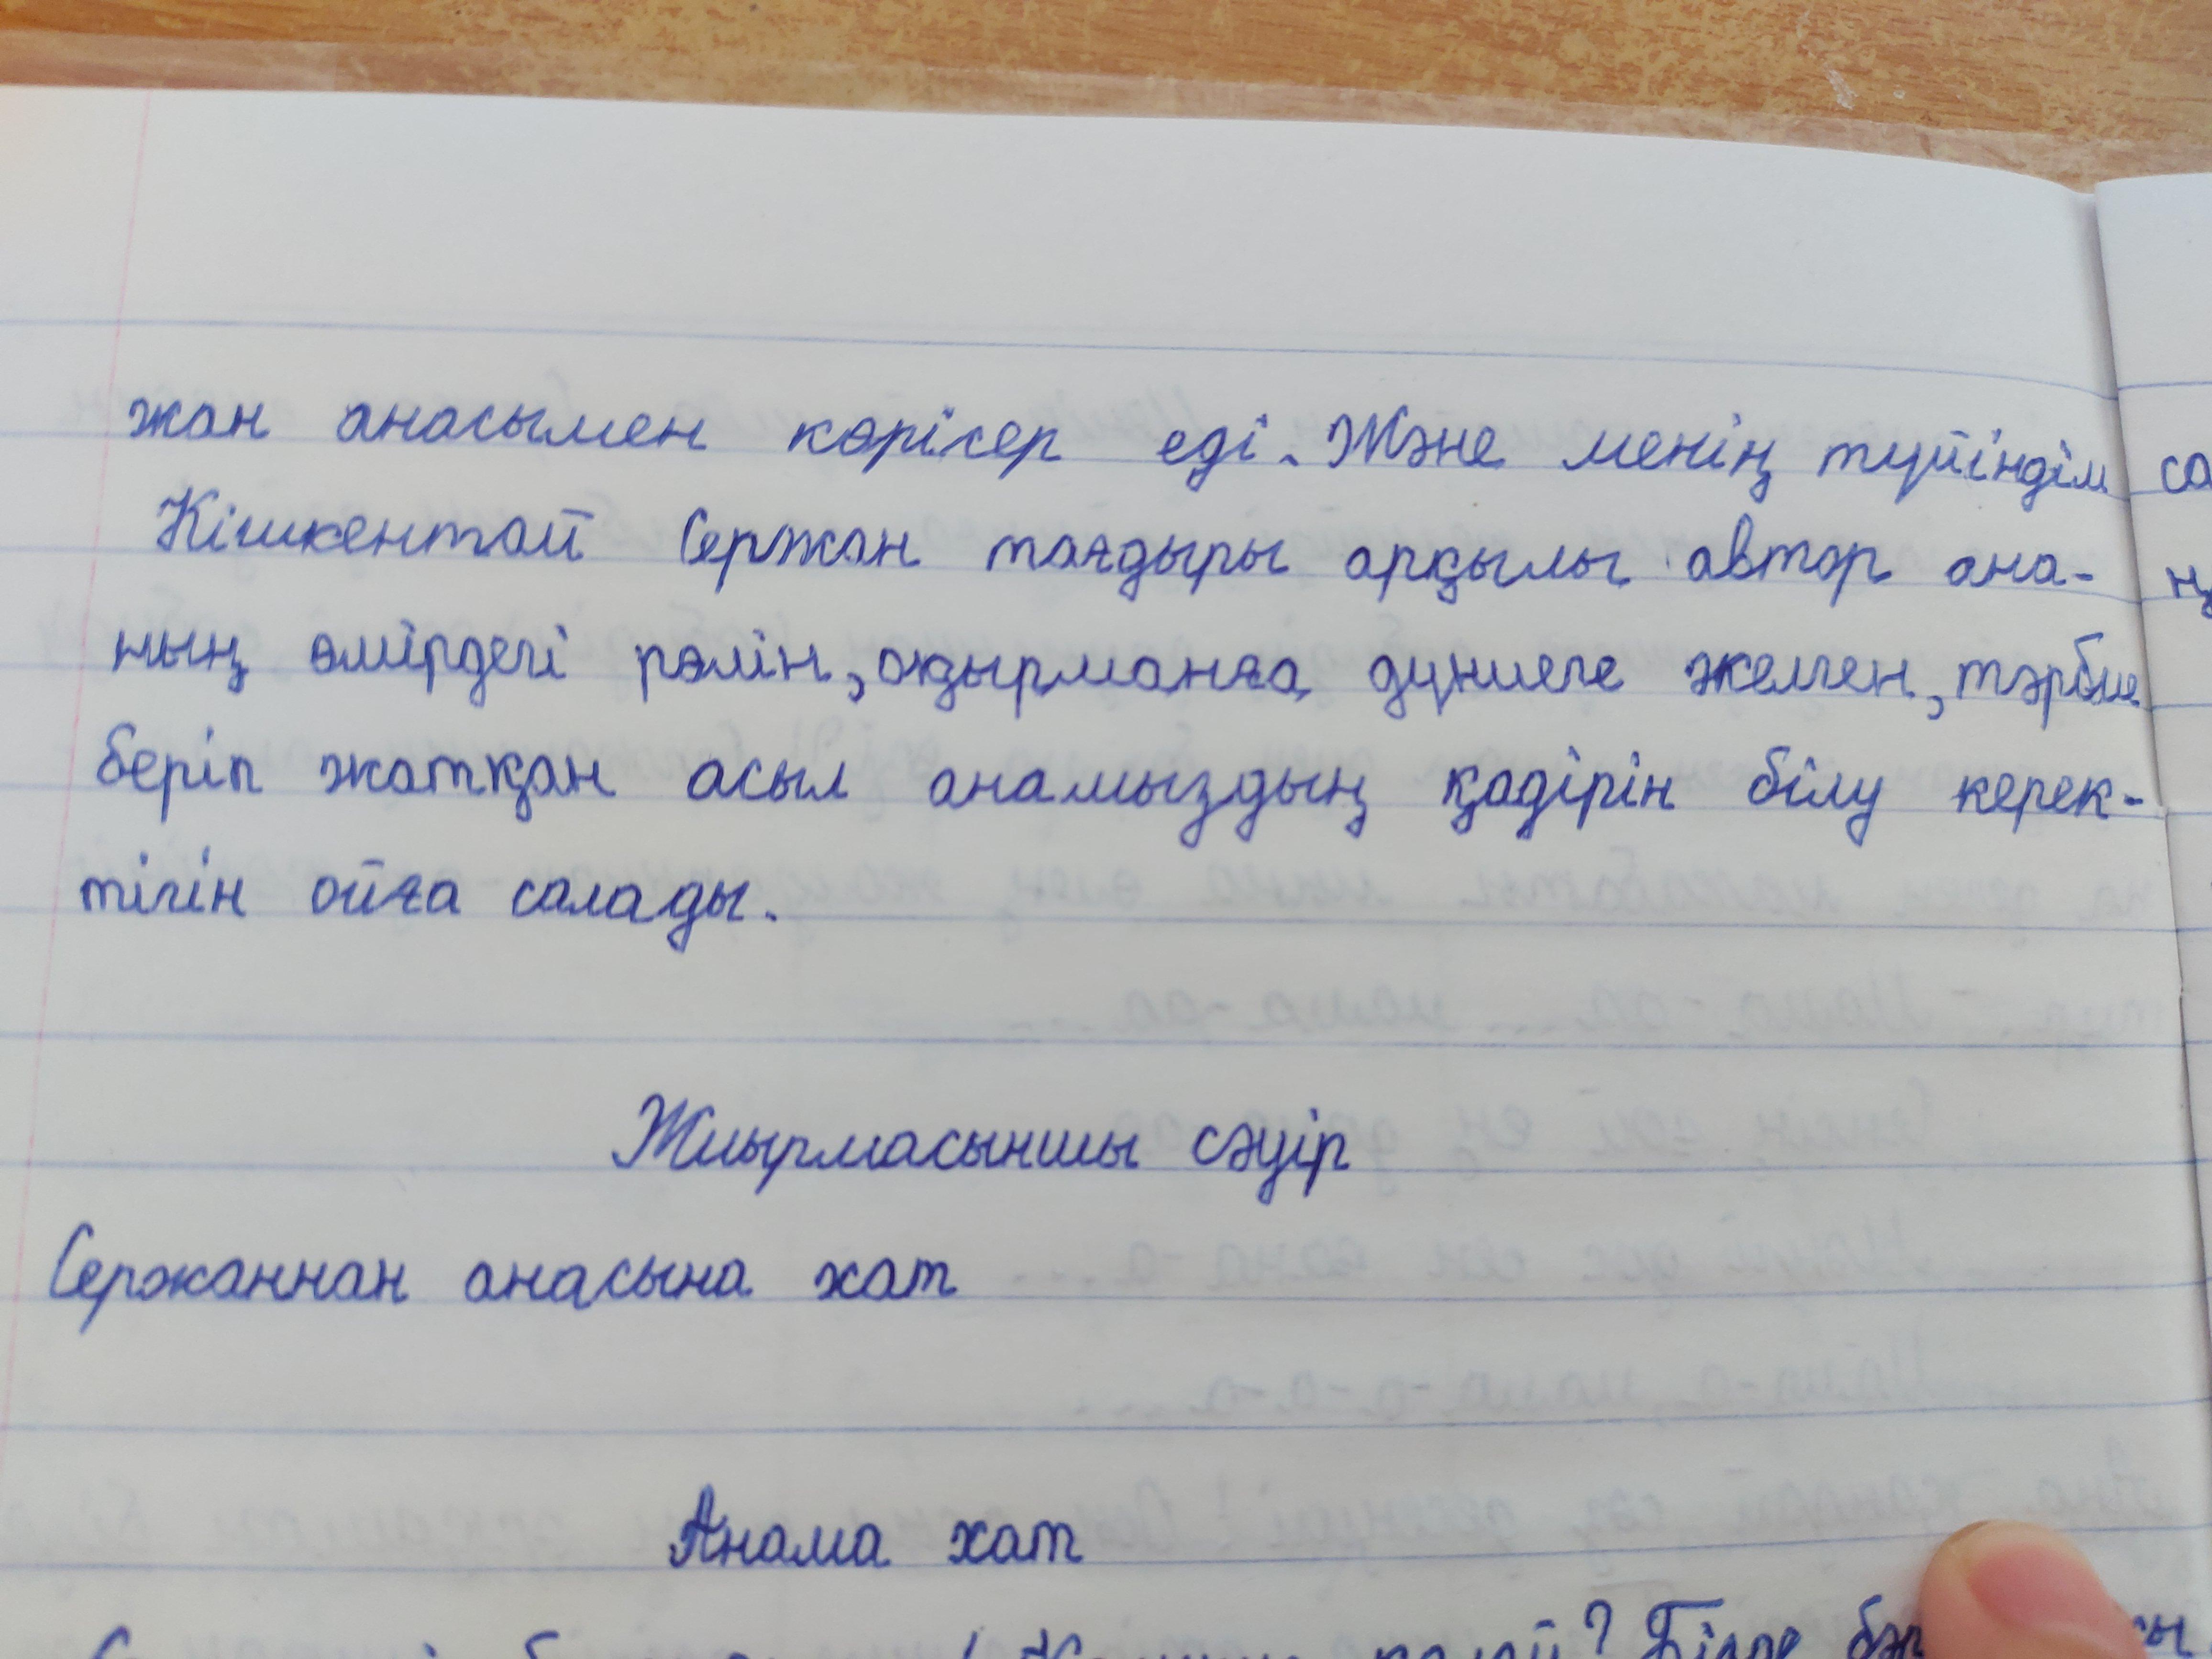 жан анасымен көрісер еді. Және менің түйіндім
Кішкентай Сержан тағдыры арқылы автор ана-
ның өмірдегі рөлін, оқырманға дүниеге әкелген, тәрбие
беріп жатқан асыл анамыздың қадірін білу керек-
тігін ойға салады.
Жиырмасыншы сәуір
Сержаннан анасына хат
Анама хат
? Білсе
са
ң